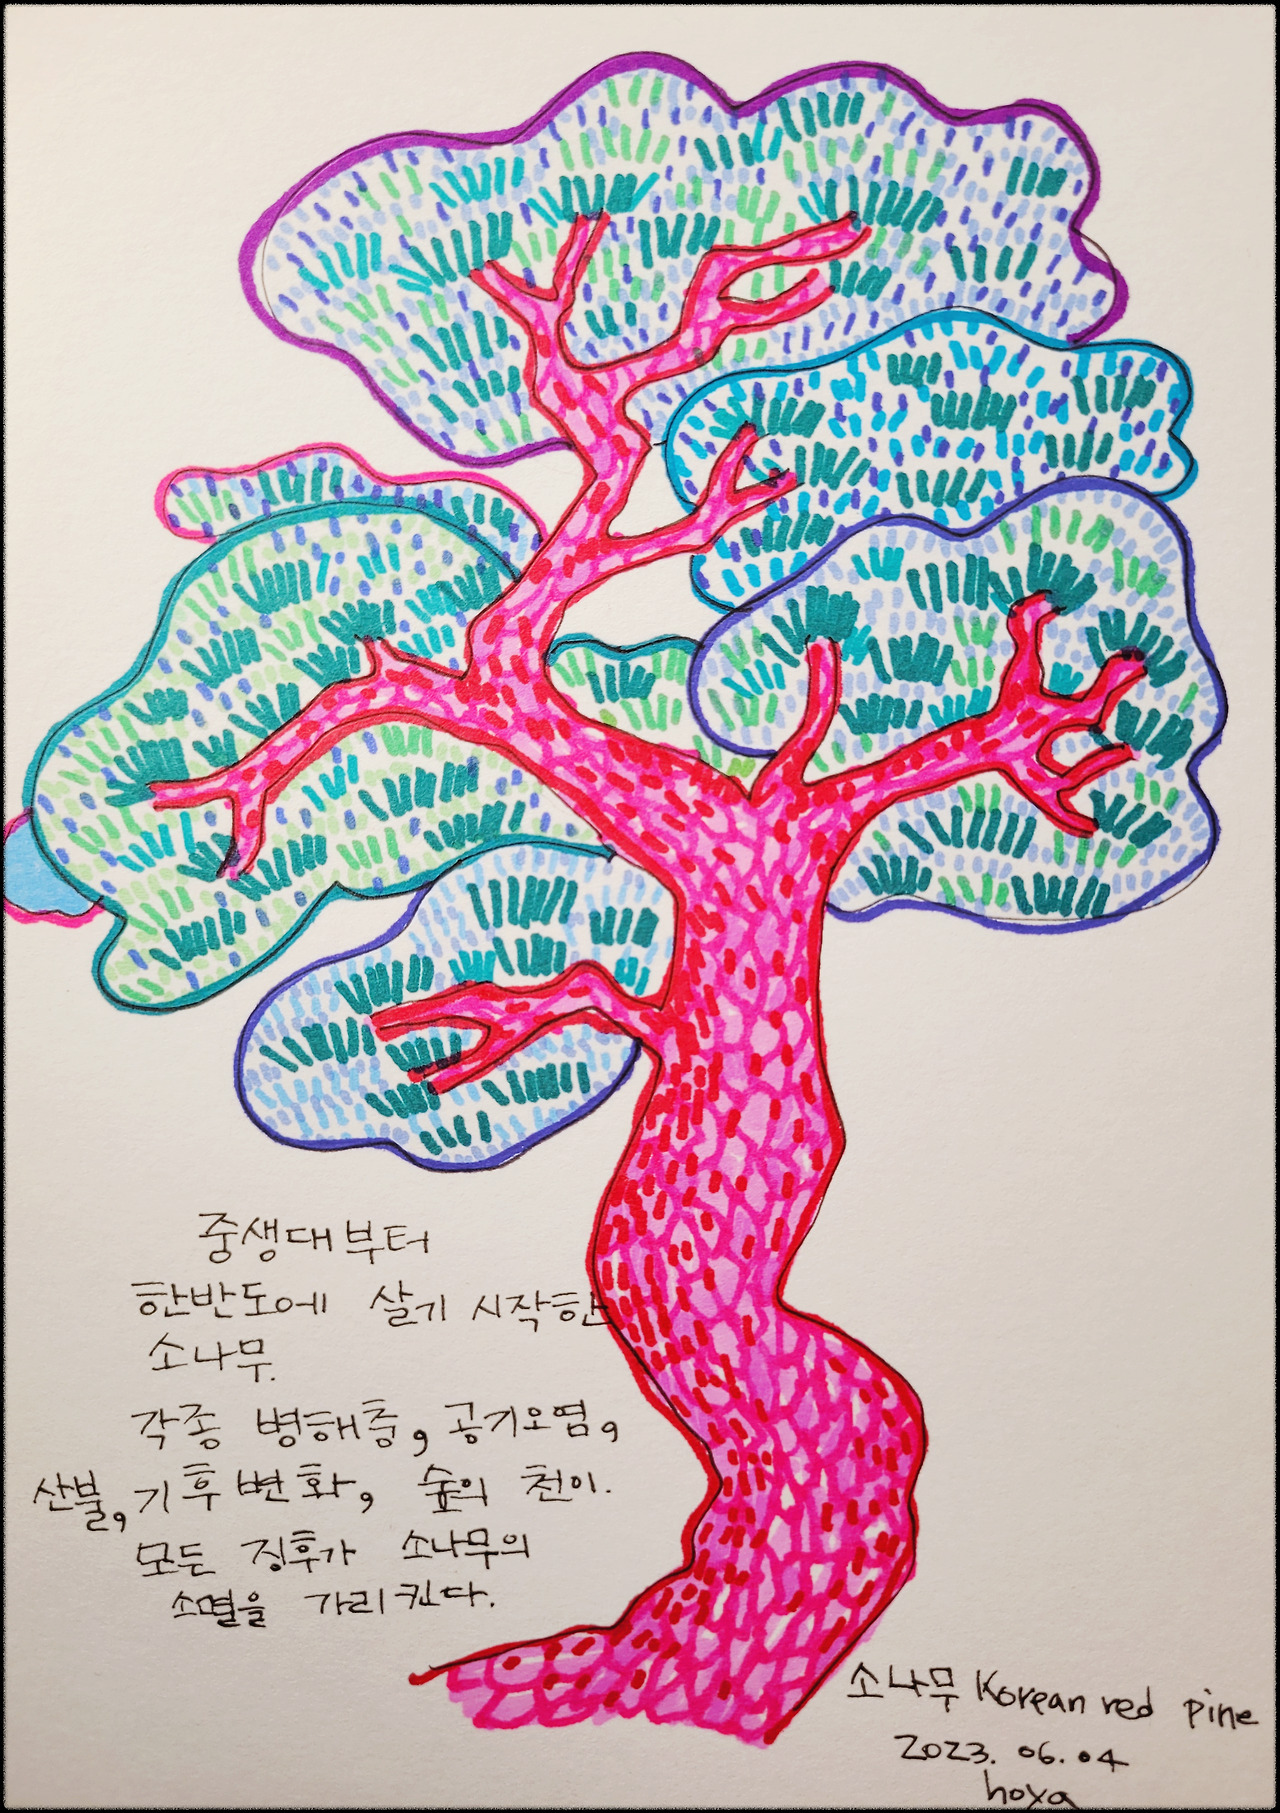 중생대부터
한반도에 살기 시작한
소나무.
각종 병해충, 공기오염,
산불, 기후변화, 숲의 천이.
모든 징후가 소나무의
소멸을 가리킨다.
소나무 Korean red pine
2023. 06. 04
hoya